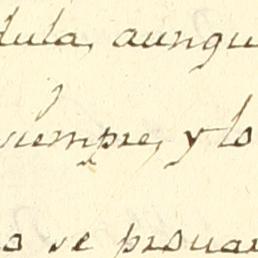 dula, aunqu
siempre, y lo
o se prouar